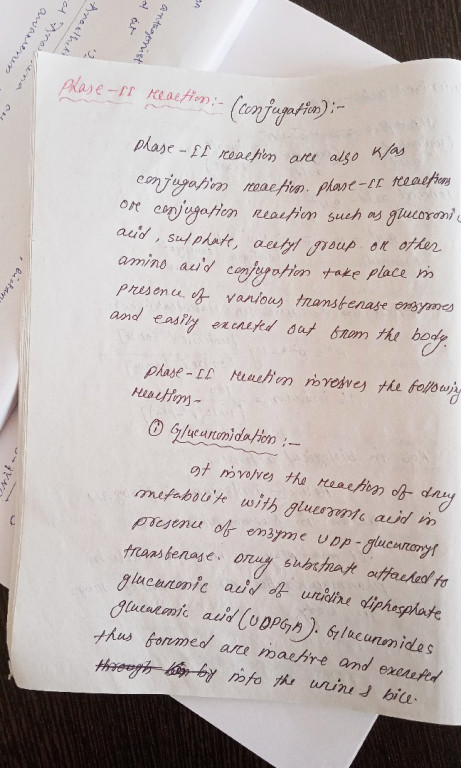 Phase-II reaction:- (conjugation):-
phase-II reaction are also K/as
conjugation reaction. phase-II reactions
or conjugation reaction such as glucoroni
acid, sulphate, acetyl group or other
amino acid conjugation take place in
presence of various transferase enzymes
and easily excreted out from the body.
phase-II reaction involves the following
reactions-
① Glucuronidation:-
It involves the reaction of drug
metabolite with glucoronic acid in
presence of enzyme UDP-glucuronyl
transferase. Drug substrate attached to
glucuronic acid of uridine diphosphate
glucuronic acid (UDPGA). Glucuronides
thus formed are inactive and excreted
through by into the urine & bile.